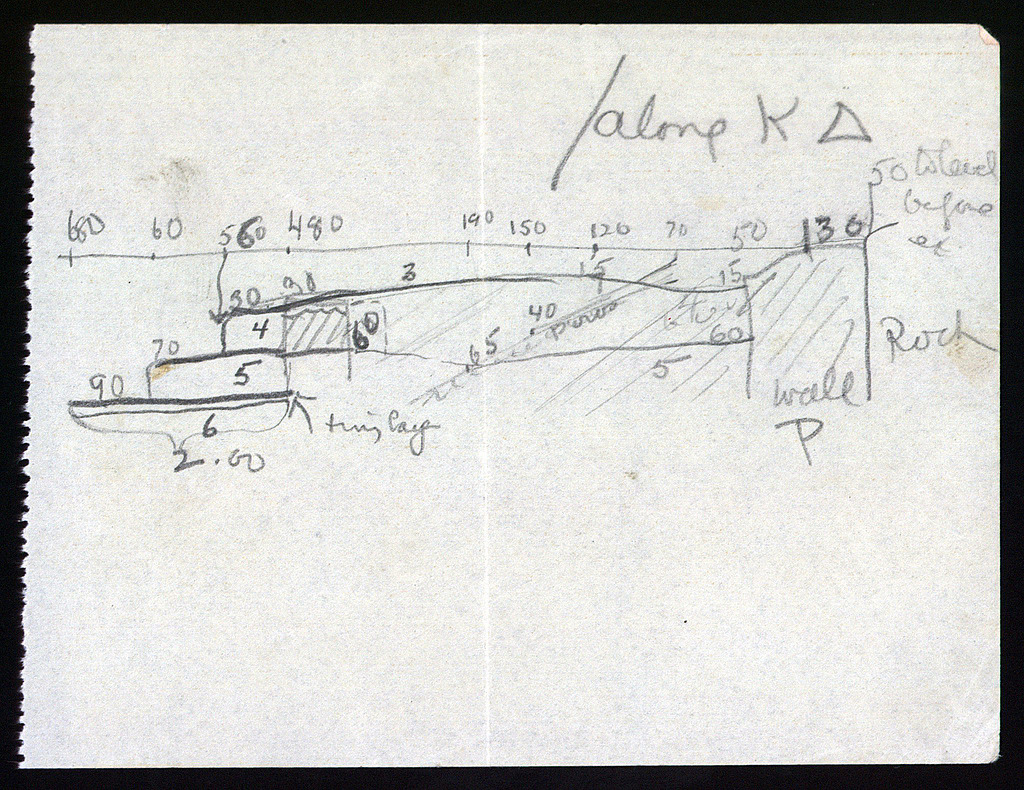 along K Δ
50 to level
before
ex
680 60 560 480 190 150 120 70 50 130
30 30 3 15 15
4 60 40
70 65 60
5 5
90
Rock
6
2.00
wall
P